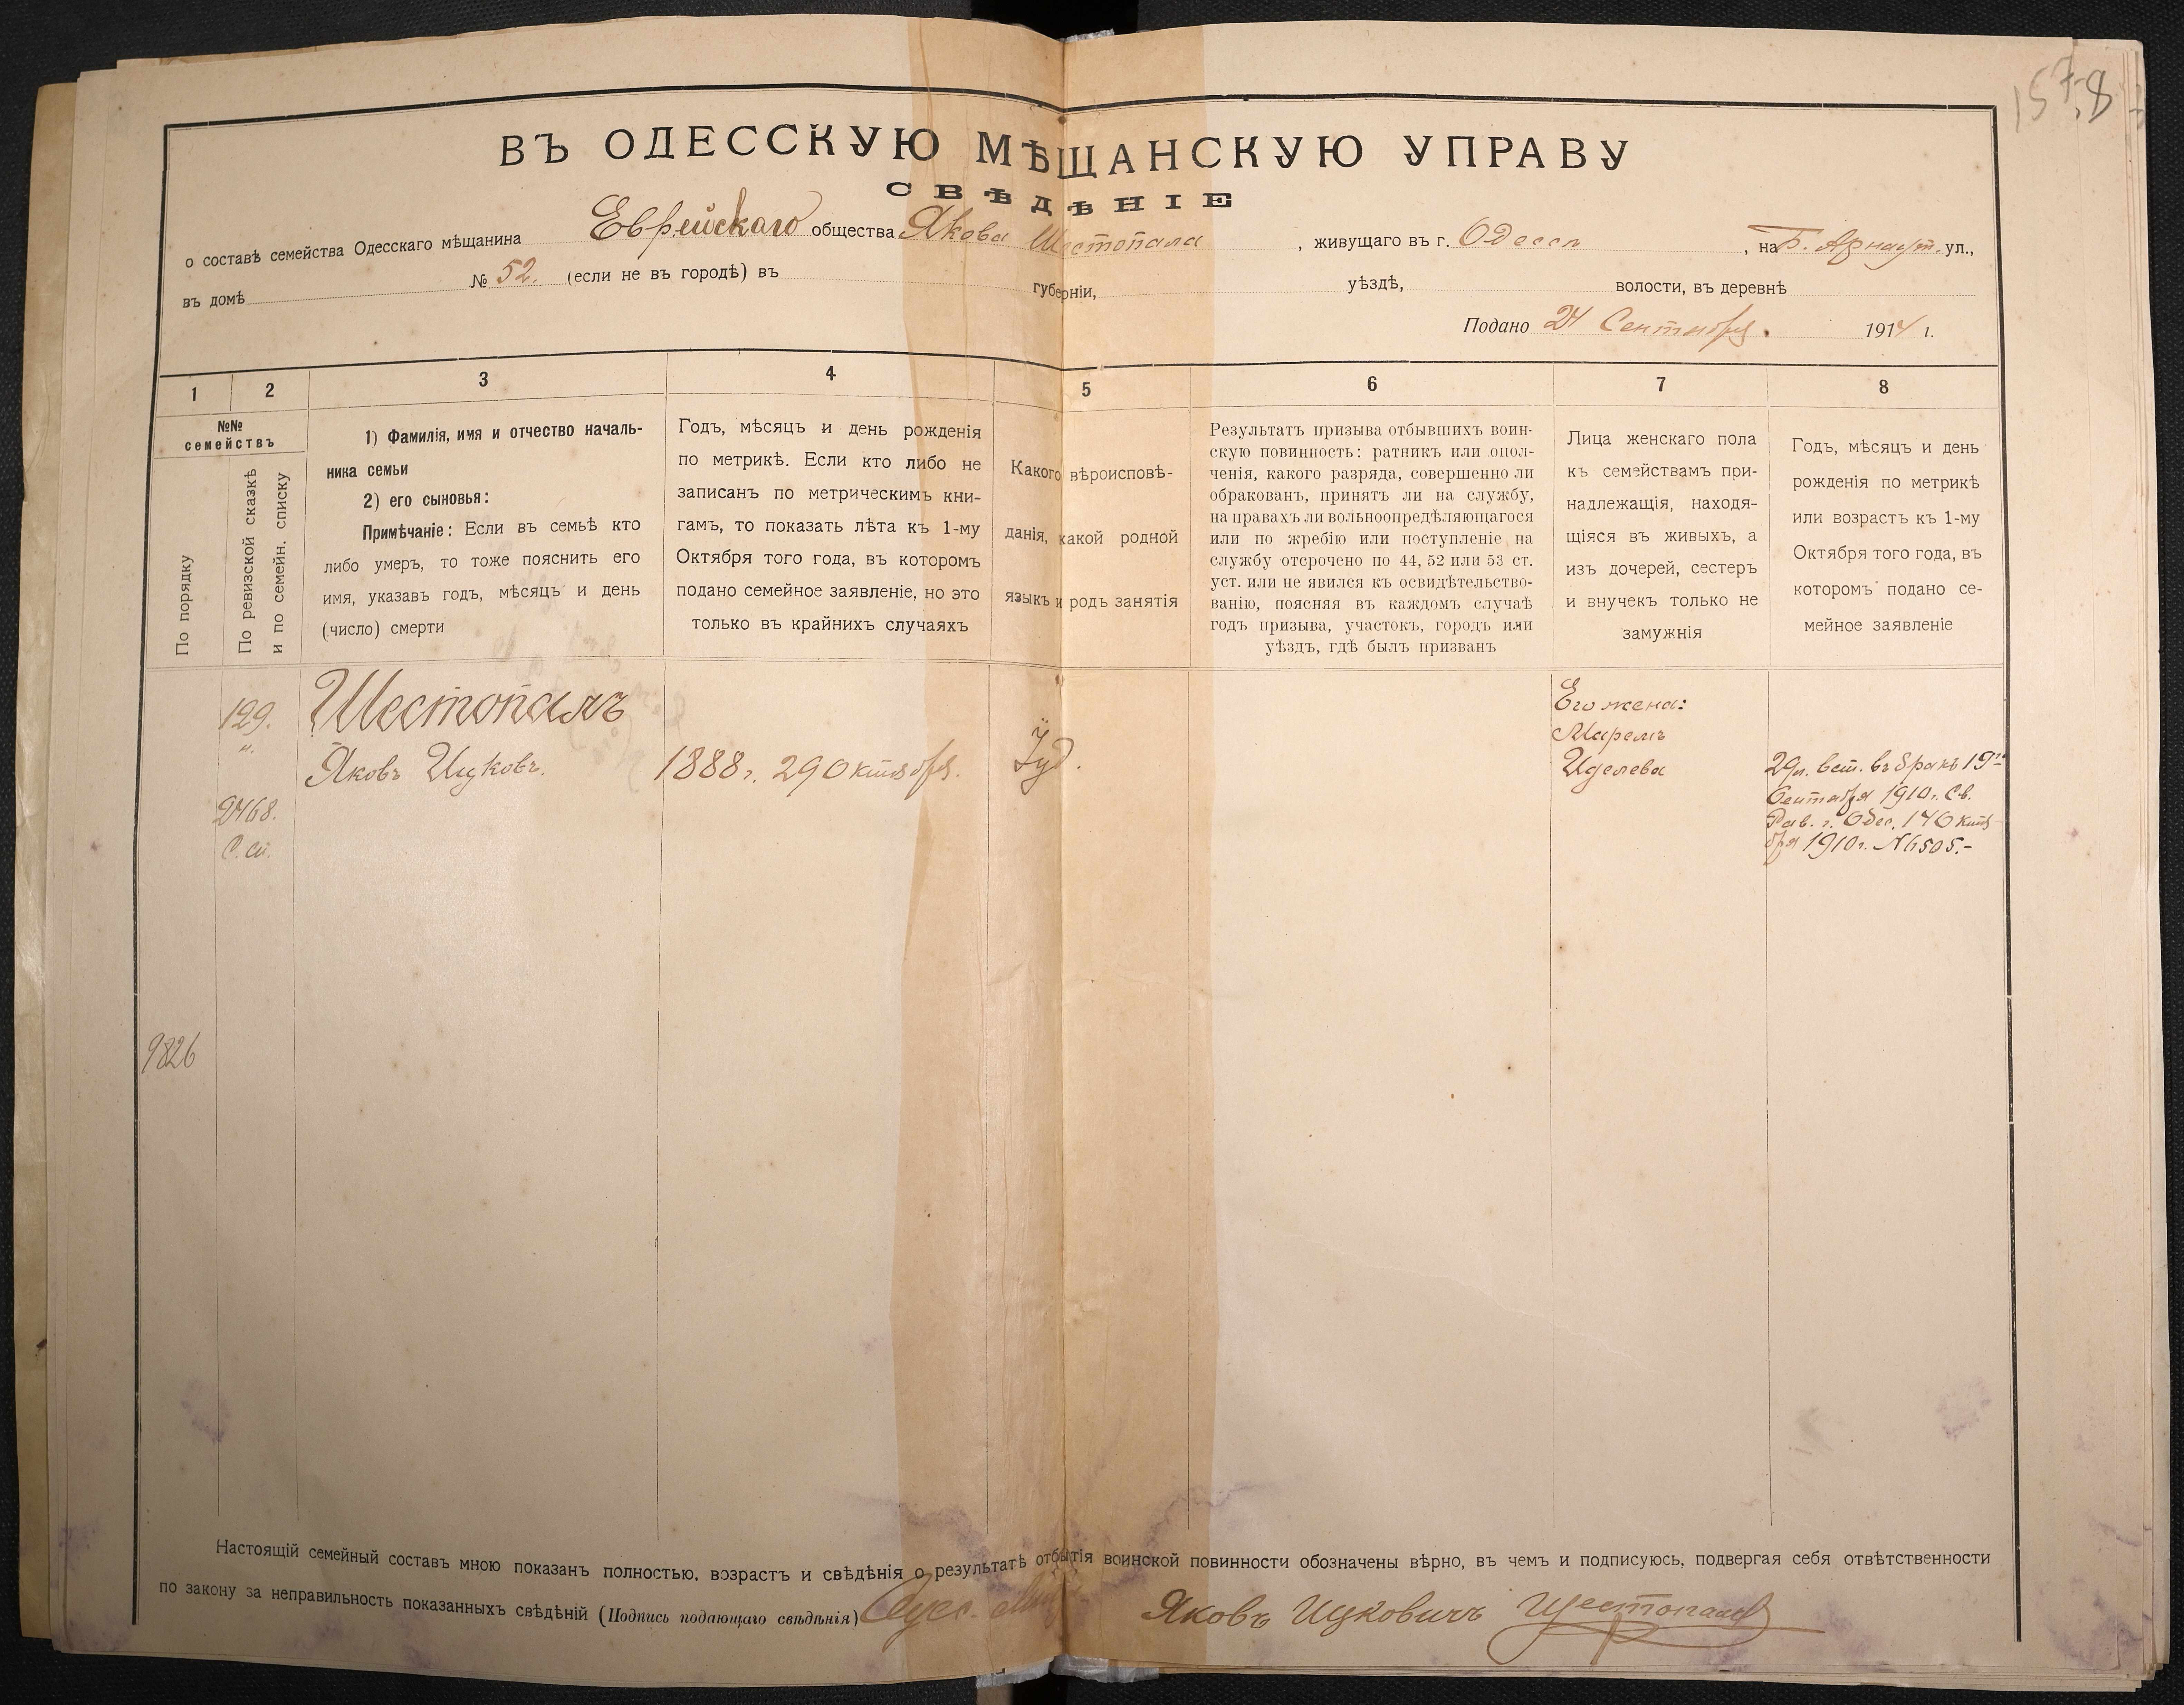 1578
ВЪ ОДЕССКУЮ МѢЩАНСКУЮ УПРАВУ
СВѢДѢНІЕ
о составѣ семейства Одесскаго мѣщанина Еврейскаго общества Якова Шестопала, живущаго въ г. Одессѣ, на Б. Арнаут. ул.,
въ домѣ № 52. (если не въ городѣ) въ губерніи, уѣздѣ, волости, въ деревнѣ
Подано 24 Сентября. 1914 г.
1 2 3 4 5 6 7 8
№№
семействъ
По порядку
По ревизской сказкѣ
и по семейн. списку
1) Фамилія, имя и отчество началь-
ника семьи
2) его сыновья:
Примѣчаніе: Если въ семьѣ кто
либо умеръ, то тоже пояснить его
имя, указавъ годъ, мѣсяцъ и день
(число) смерти
Годъ, мѣсяцъ и день рожденія
по метрикѣ. Если кто либо не
записанъ по метрическимъ кни-
гамъ, то показать лѣта къ 1-му
Октября того года, въ которомъ
подано семейное заявленіе, но это
только въ крайнихъ случаяхъ
Какого вѣроисповѣ-
данія, какой родной
языкъ и родъ занятія
Результатъ призыва отбывшихъ воин-
скую повинность: ратникъ или опол-
ченія, какого разряда, совершенно ли
обракованъ, принятъ ли на службу,
на правахъ ли вольноопредѣляющагося
или по жребію или поступленіе на
службу отсрочено по 44, 52 или 53 ст.
уст. или не явился къ освидѣтельство-
ванію, поясняя въ каждомъ случаѣ
годъ призыва, участокъ, городъ или
уѣздъ, гдѣ былъ призванъ
Лица женскаго пола
къ семействамъ при-
надлежащія, находя-
щіяся въ живыхъ, а
изъ дочерей, сестеръ
и внучекъ только не
замужнія
Годъ, мѣсяцъ и день
рожденія по метрикѣ
или возрастъ къ 1-му
Октября того года, въ
которомъ подано се-
мейное заявленіе
129.
"
2468.
С. сп.
9826
Шестопалъ
Яковъ Ицковъ.
1888 г. 29 Октября.
Іуд.
Его жена:
Маремъ
Иделева
29 л. вст. въ бракъ 19го
Сентября 1910 г. Св.
Рав. г. Одес. 14 Октя
бря 1910 г. № 6505.-
Настоящій семейный составъ мною показанъ полностью, возрастъ и свѣдѣнія о результатѣ отбытія воинской повинности обозначены вѣрно, въ чемъ и подписуюсь, подвергая себя отвѣтственности
по закону за неправильность показанныхъ свѣдѣній (Подпись подающаго свѣдѣнія) Яковъ Ицковичъ Шестопалъ